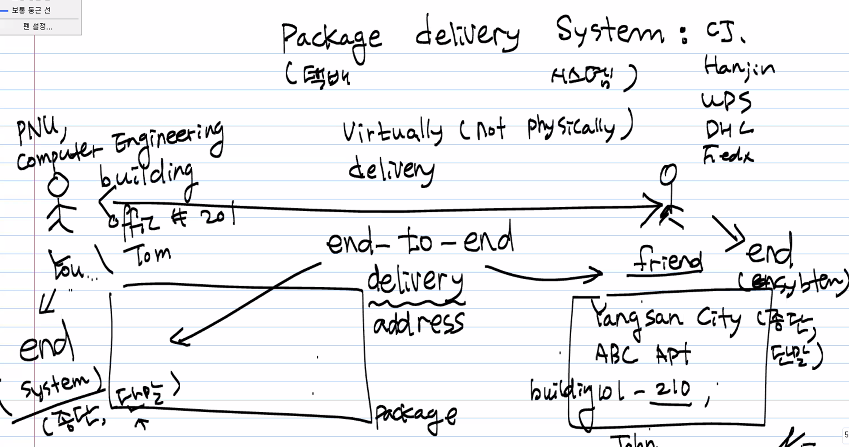 보통 둥근 선
펜 설정...
Package delivery System : CJ.
(택배 시스템)
Hanjin
UPS
DHL
Fedx
PNU,
Computer Engineering
building
office # 201
Tom
Virtually (not physically)
delivery
You...
end-to-end
delivery
address
friend
end
end
(system)
(종단,
단말)
Yangsan City (종단,
ABC APT 단말)
building 101 - 210,
package
John